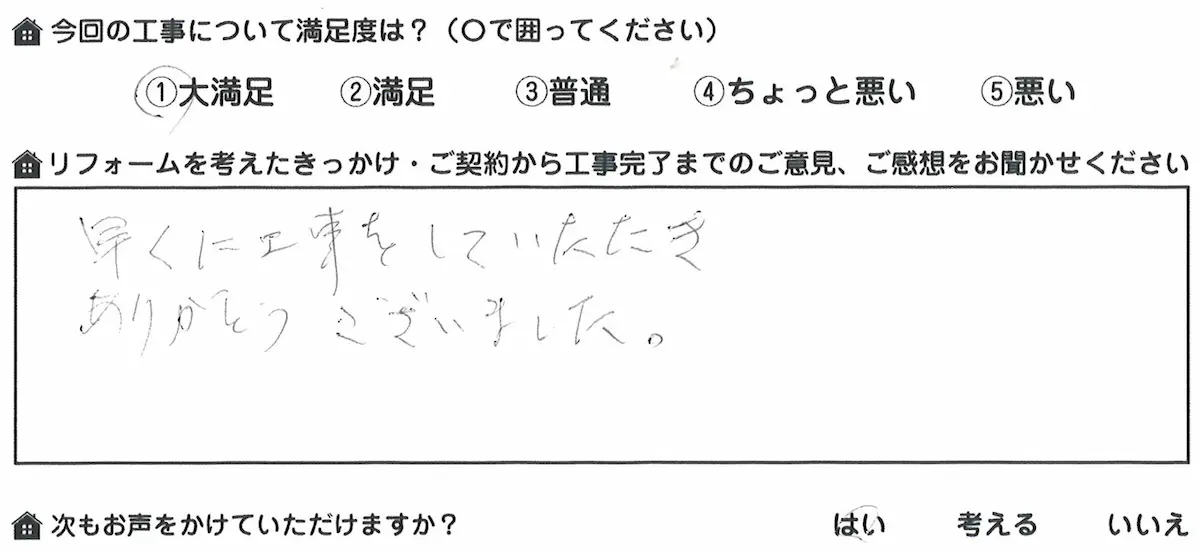 今回の工事について満足度は？（〇で囲ってください）
①大満足 ②満足 ③普通 ④ちょっと悪い ⑤悪い
リフォームを考えたきっかけ・ご契約から工事完了までのご意見、ご感想をお聞かせください
早くに工事をしていただき
ありがとうございました。
次もお声をかけていただけますか？ はい 考える いいえ